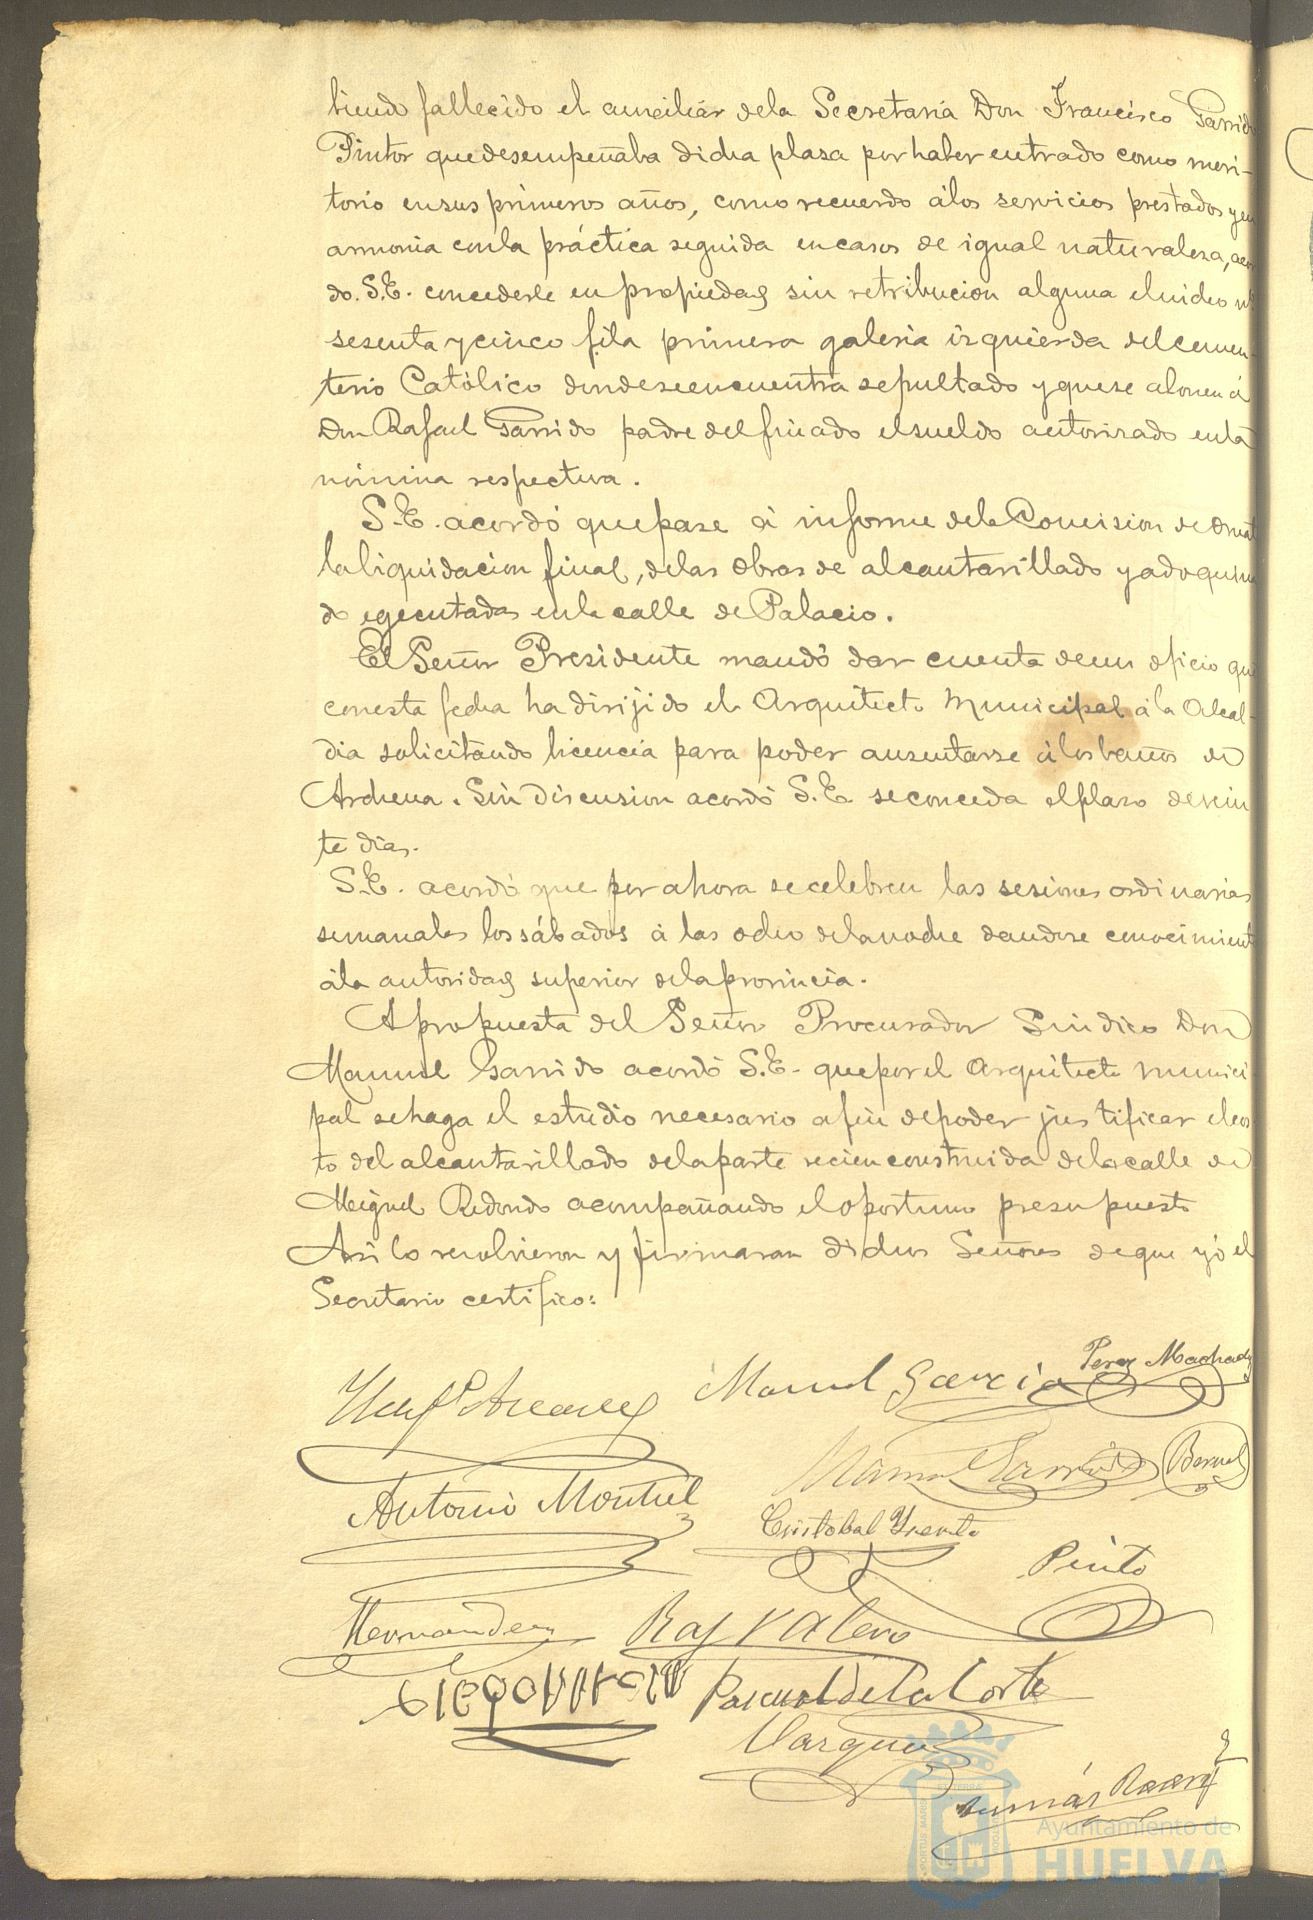 biendo fallecido el auxiliar dela Secretaria Don Francisco Garrido
Pintor quedesempeñaba dicha plaza por haber entrado como meri-
torio ensus primeros años, como recuerdo álos servicios prestados yen
armonia conla práctica seguida encasos de igual naturaleza, acor
dó. S.E. concederle en propiedad sin retribucion alguna elnicho nº
sesenta ycinco fila primera galeria izquierda delcemen-
terio Católico dondeseencuentra sepultado yquese abonen á
Don Rafael Garrido padre delfinado elsueldo autorizado enla
nómina respectiva.
S.E. acordó quepase á informe dela Comision de Ornato
laliquidacion final, delas obras de alcantarillado yadoquina
do egecutadas enla calle de Palacio.
El Señor Presidente mandó dar cuenta deun oficio que
conesta fecha ha dirijido el Arquitecto Municipal á la Alcal-
dia solicitando licencia para poder ausentarse álosbaños de
Archena. Sin discusion acordó S.E. seconceda elplazo devein
te dias.
S.E. acordó que por ahora secelebren las sesiones ordinarias
semanales lossábados á las ocho delanoche dandose conocimiento
ála autoridad superior delaprovincia.
Apropuesta del Señor Procurador Sindico Don
Manuel Garrido acordó S.E. quepor el Arquitecto munici-
pal sehaga el estudio necesario afin depoder justificar elcos
to del alcantarillado delaparte recien construida delacalle de
Miguel Redondo acompañando eloportuno presupuesto
Asi lo resolvieron y firmaran dichos Señores deque yó el
Secretario certifico:
Manuel Garcia Perez Machado
Manuel Garrido Bernal
Antonio Montiel
Cristobal Yzento
Pinto
Hernandez Raf Valero
Pascual de la Corte
Vazquez
Tomás
Ayuntamiento de
HUELVA